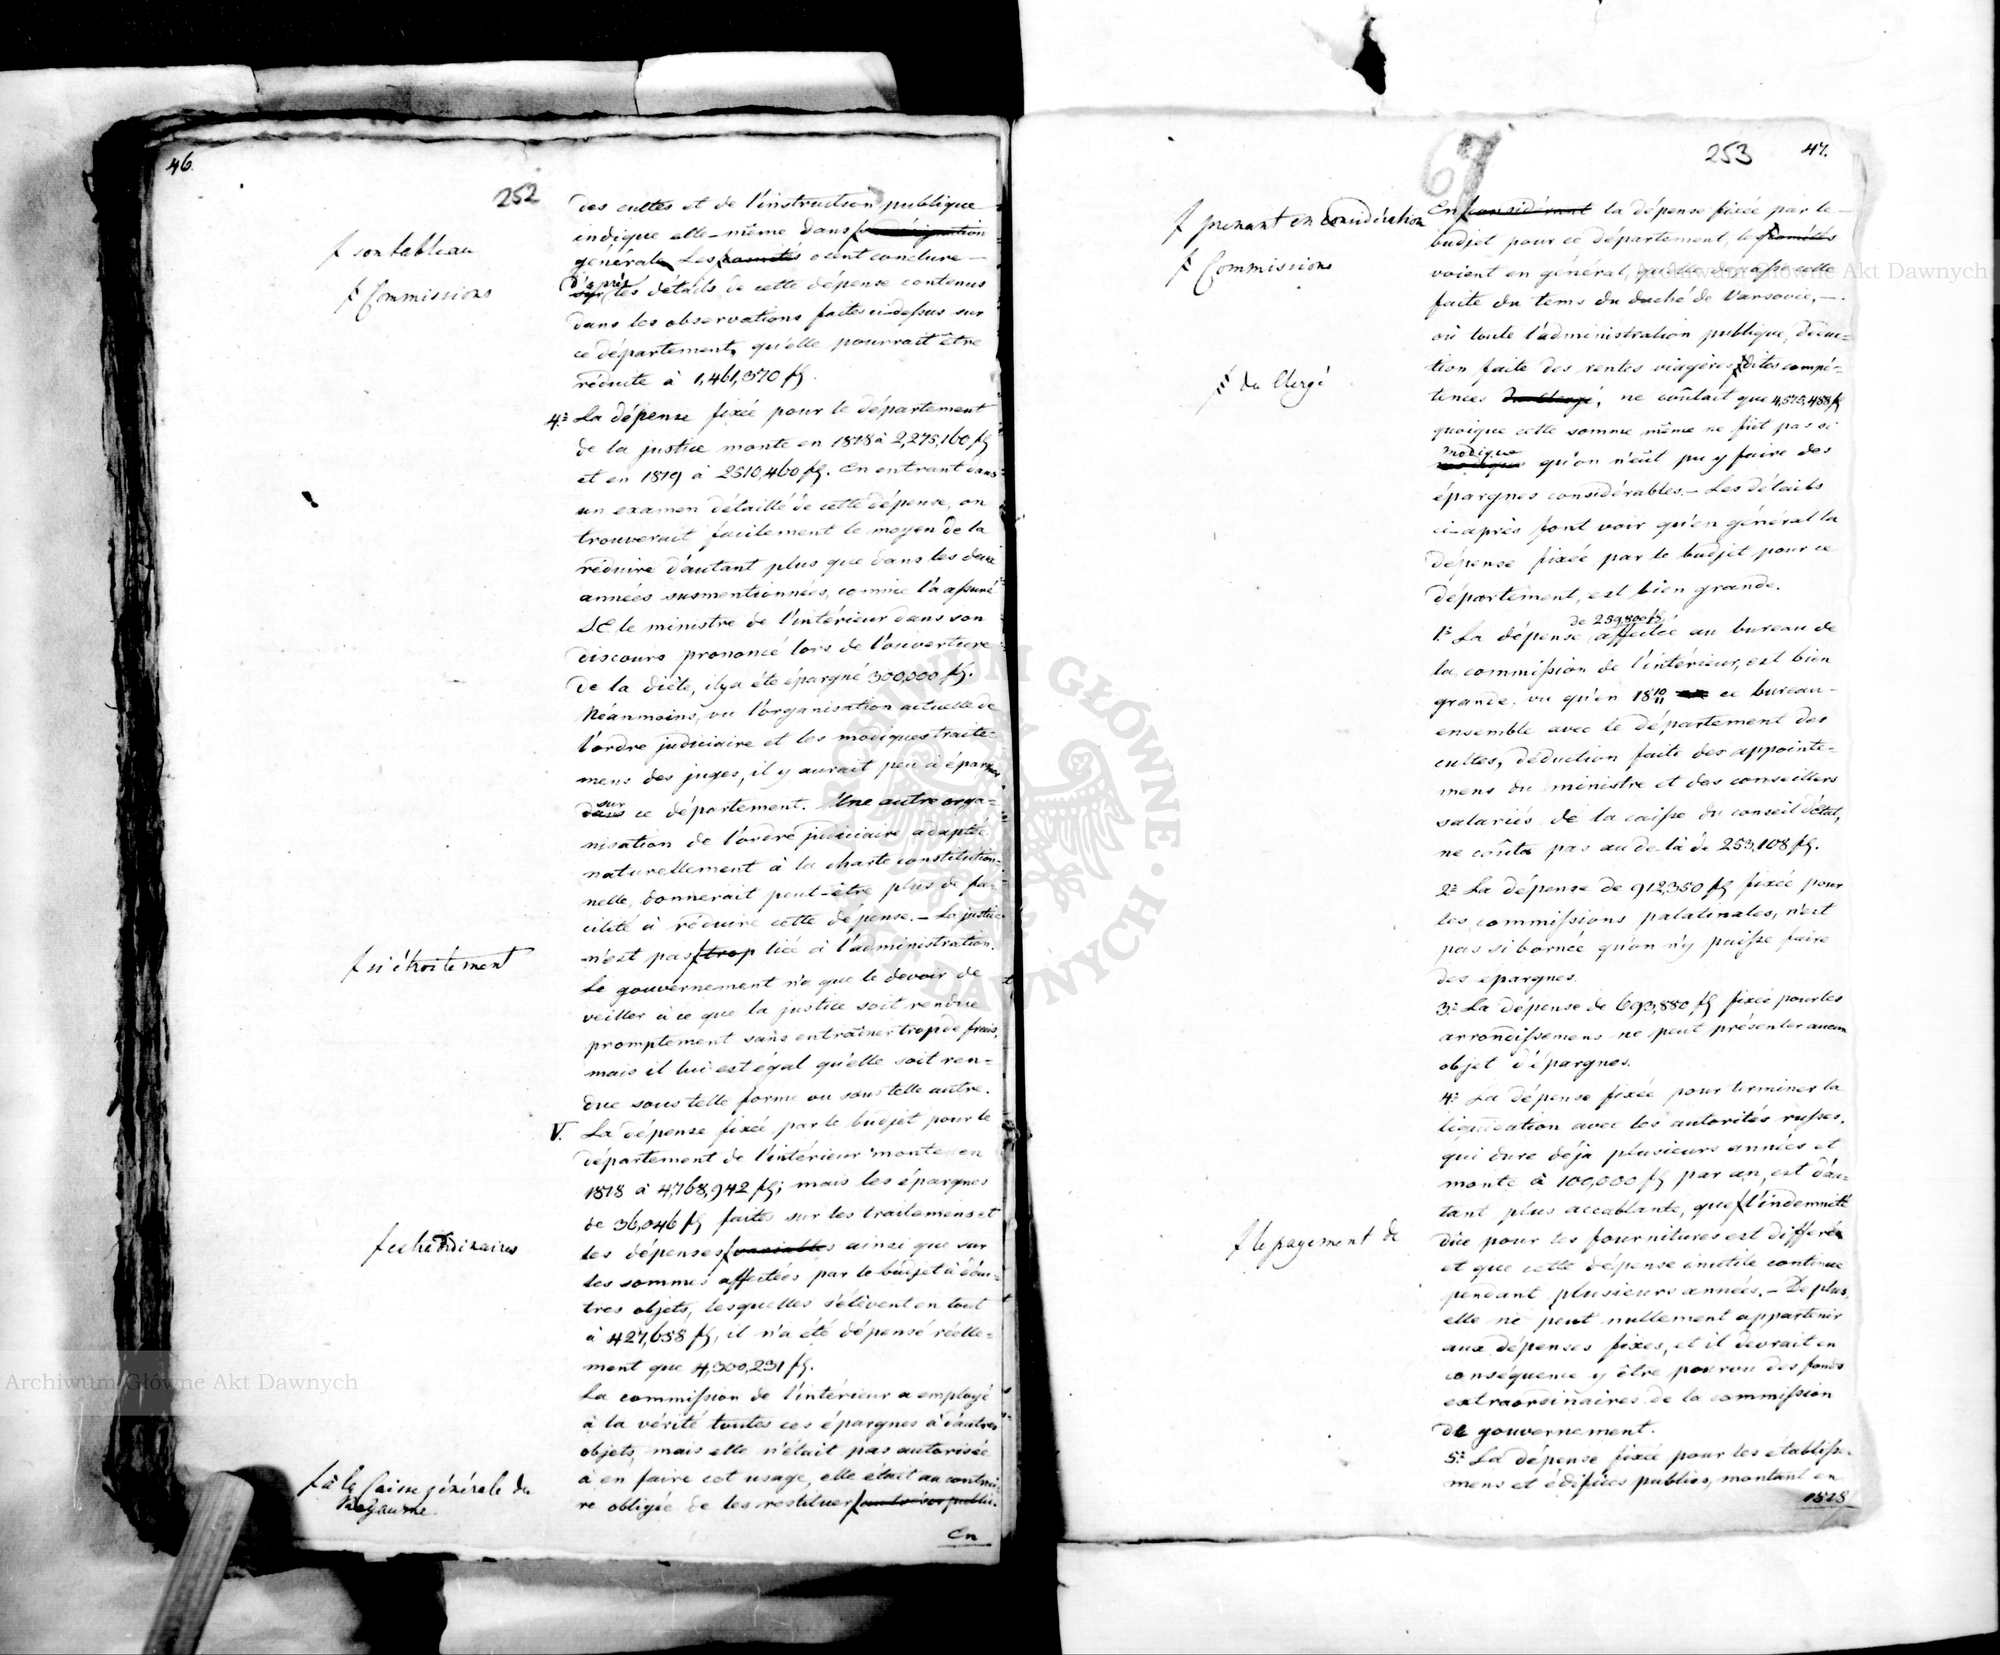 46.
252
des cultes et de l'instruction publique
indique elle-même dans
générale. Les comités osent conclure —
d'après
sur les détails de cette dépense contenus
dans les observations faites ci-dessus sur
ce département, qu'elle pourrait être
réduite à 1,461,370 fl.
4º La dépense fixée pour le département
de la justice monte en 1818 à 2,275,160 fl
et en 1819 à 2310,460 fl. En entrant dans
un examen détaillé de cette dépense, on
trouverait facilement le moyen de la
réduire d'autant plus que dans les deux
années susmentionnées, comme l'a assuré
S.E. le ministre de l'intérieur dans son
discours prononcé lors de l'ouverture
de la diète, il y a été épargné 300,000 fl.
Néanmoins, vu l'organisation actuelle de
l'ordre judiciaire et les modiques traite=
mens des juges, il y aurait peu à épargner
sur
dans ce département. Une autre orga=
nisation de l'ordre judiciaire adaptée
naturellement à la charte constitution=
nelle, donnerait peut-être plus de fa=
cilité à réduire cette dépense. — La justice
n'est pas trop liée à l'administration.
Le gouvernement n'a que le devoir de
veiller à ce que la justice soit rendue
promptement sans entraîner trop de frais,
mais il lui est égal qu'elle soit ren=
due sous telle forme ou sous telle autre.
V. La dépense fixée par le budjet pour le
département de l'intérieur monte en
1818 à 4,768,942 fl; mais les épargnes
de 36,046 fl faites sur les traitemens et
les dépenses variables ainsi que sur
les sommes affectées par le budjet à d'au=
tres objets, lesquelles s'élèvent en tout
à 427,658 fl, il n'a été dépensé réelle=
ment que 4,300,231 fl.
La commission de l'intérieur a employé
à la vérité toutes ces épargnes à d'autres
objets, mais elle n'était pas autorisée
à en faire cet usage, elle était au contrai
re obligée de les restituer au trésor public.
En
son tableau
Commissions
si étroitement
extraordinaires
à la Caisse générale du
Royaume.
67
253
47.
En considérant la dépense fixée par le —
budjet pour ce département, les comités
voient en général, qu'elle surpasse celle
faite du tems du duché de Varsovie, —
où toute l'administration publique, déduc=
tion faite des rentes viagères dites compé=
tences du clergé, ne coûtait que 4,573,458 fl
quoique cette somme même ne fût pas si
modique
modique qu'on n'eût pu y faire des
épargnes considérables. — Les détails
ci-après font voir qu'en général la
dépense fixée par le budjet pour ce
département, est bien grande.
de 259,800 fl
1º La dépense affectée au bureau de
la commission de l'intérieur, est bien
grande, vu qu'en 18 10/11 ce bureau —
ensemble avec le département des
cultes, déduction faite des appointe=
mens du ministre et des conseillers
salariés de la caisse du conseil d'état,
ne coûta pas au de là de 253,108 fl.
2º La dépense de 912,350 fl fixée pour
les commissions palatinales, n'est
pas si bornée qu'on n'y puisse faire
des épargnes.
3º La dépense de 693,880 fl fixée pour les
arrondissemens ne peut présenter aucun
objet d'épargnes.
4º La dépense fixée pour terminer la
liquidation avec les autorités russes,
qui dure déja plusieurs années et
monte à 100,000 fl par an, est d'au=
tant plus accablante, que l'indemnité
dûe pour les fournitures est différée
et que cette dépense inutile continue
pendant plusieurs années. — De plus,
elle ne peut nullement appartenir
aux dépenses fixes, et il devrait en
conséquence y être pourvu des fonds
extraordinaires de la commission
de gouvernement.
5º La dépense fixée pour les établisse=
mens et édifices publics, montant en
1818
prenant en considération
Commissions
du Clergé
le payement de
Archiwum Główne Akt Dawnych
Archiwum Główne Akt Dawnych
ARCHIWUM GŁÓWNE AKT DAWNYCH